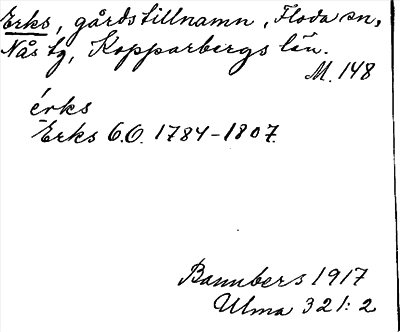 Erks, gårdstillnamn, Floda sn,
Nås tg, Kopparbergs län.
M. 148
érks
Erks G.O. 1784-1807.
Bannbers 1917
Ulma 321:2